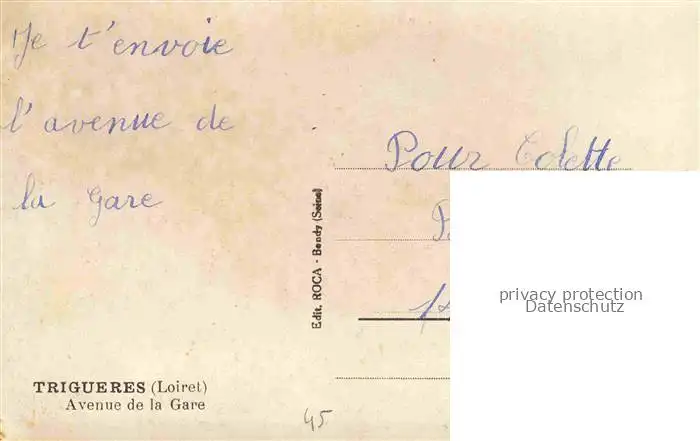 Je t'envoie
l'avenue de
la Gare
Pour Colette
Edit. ROCA - Bondy (Seine)
privacy protection
Datenschutz
TRIGUERES (Loiret)
Avenue de la Gare
45